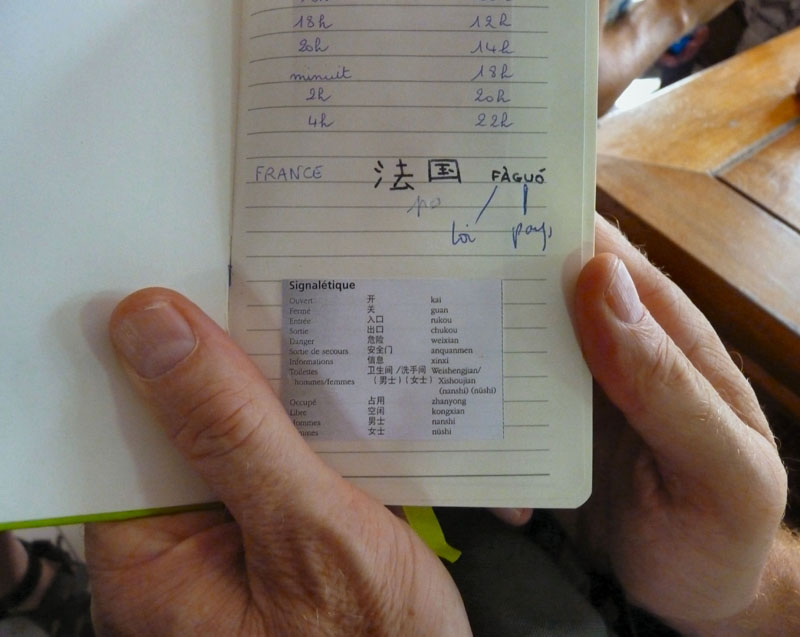 18h 12h
20h 14h
minuit 18h
2h 20h
4h 22h
FRANCE 法国 FÀGUÓ
loi pays
Signalétique
Ouvert 开 kai
Fermé 关 guan
Entrée 入口 rukou
Sortie 出口 chukou
Danger 危险 weixian
Sortie de secours 安全门 anquanmen
Informations 信息 xinxi
Toilettes 卫生间/洗手间 Weishengjian/
hommes/femmes (男士)(女士) Xishoujian
(nanshi) (nüshi)
Occupé 占用 zhanyong
Libre 空闲 kongxian
ommes 男士 nanshi
mmes 女士 nüshi